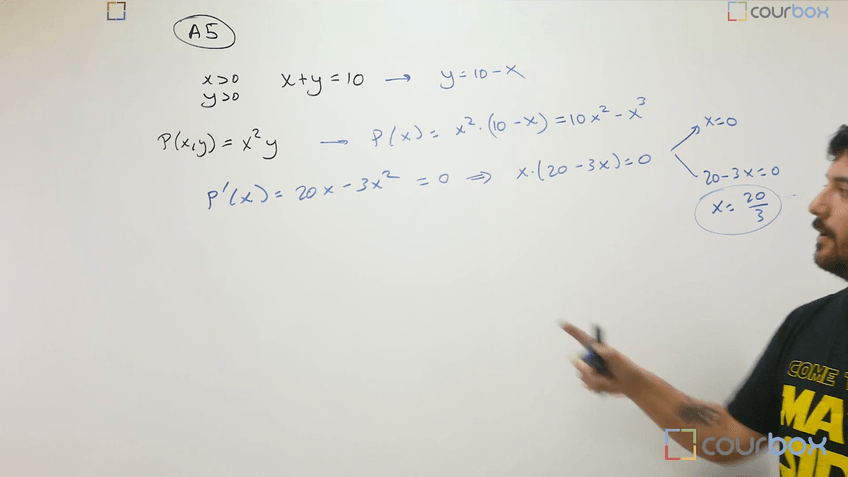 courbox
A5
x>0 x+y=10 → y=10-x
y>0
P(x,y)=x²y → P(x)= x²·(10-x)=10x²-x³
x=0
P'(x)=20x-3x²=0 ⇒ x·(20-3x)=0
20-3x=0
x=20/3
COME
MA
SID
courbox